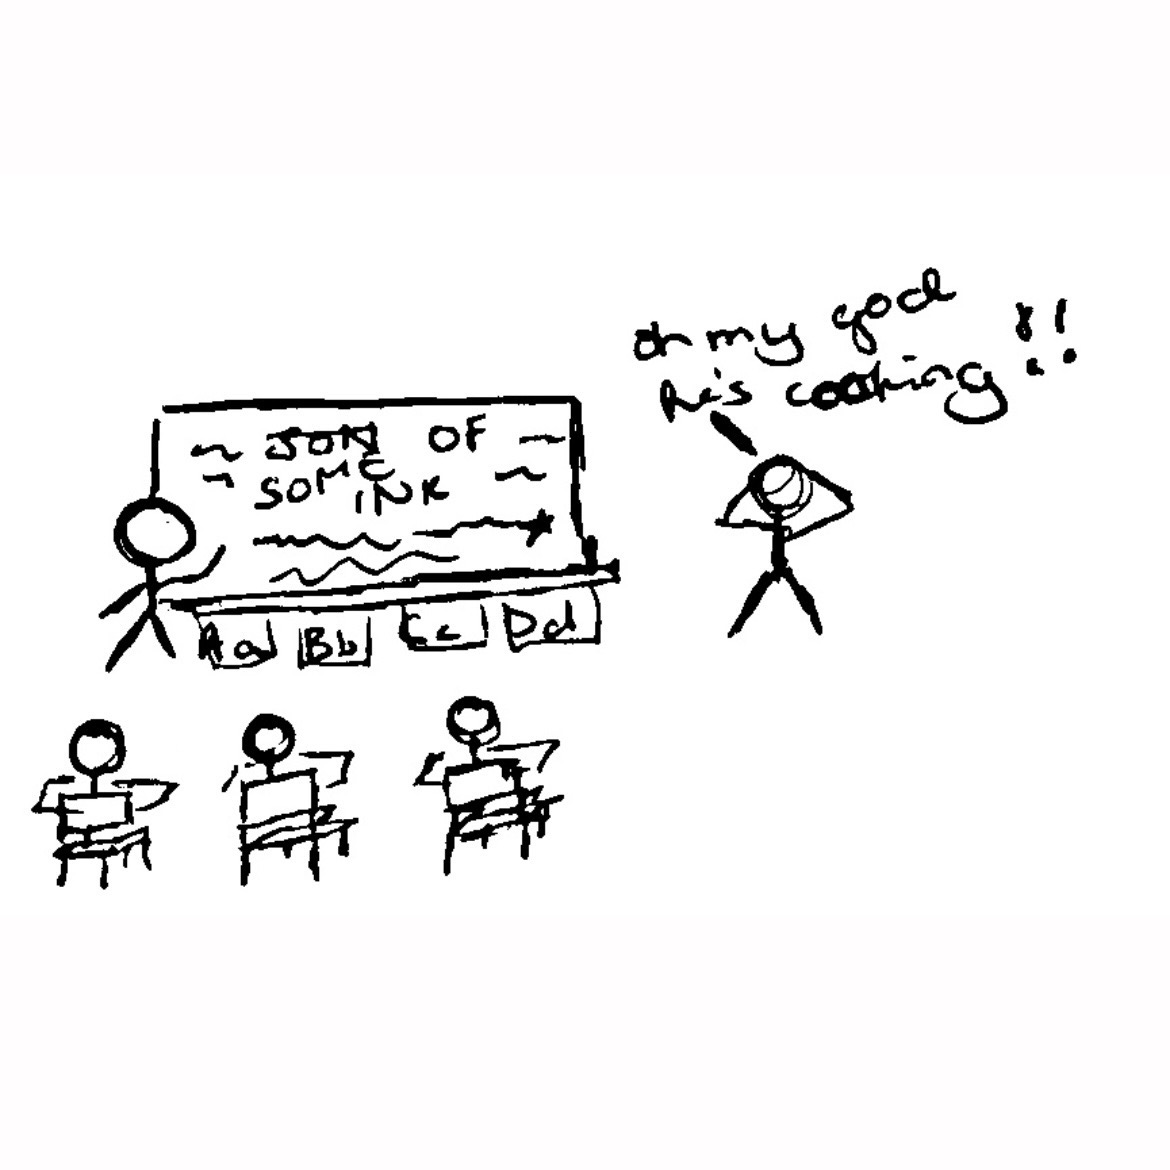 oh my god
he's cooking!!
~ SON OF ~
~ SOME ~
INK
Aa Bb Cc Dd